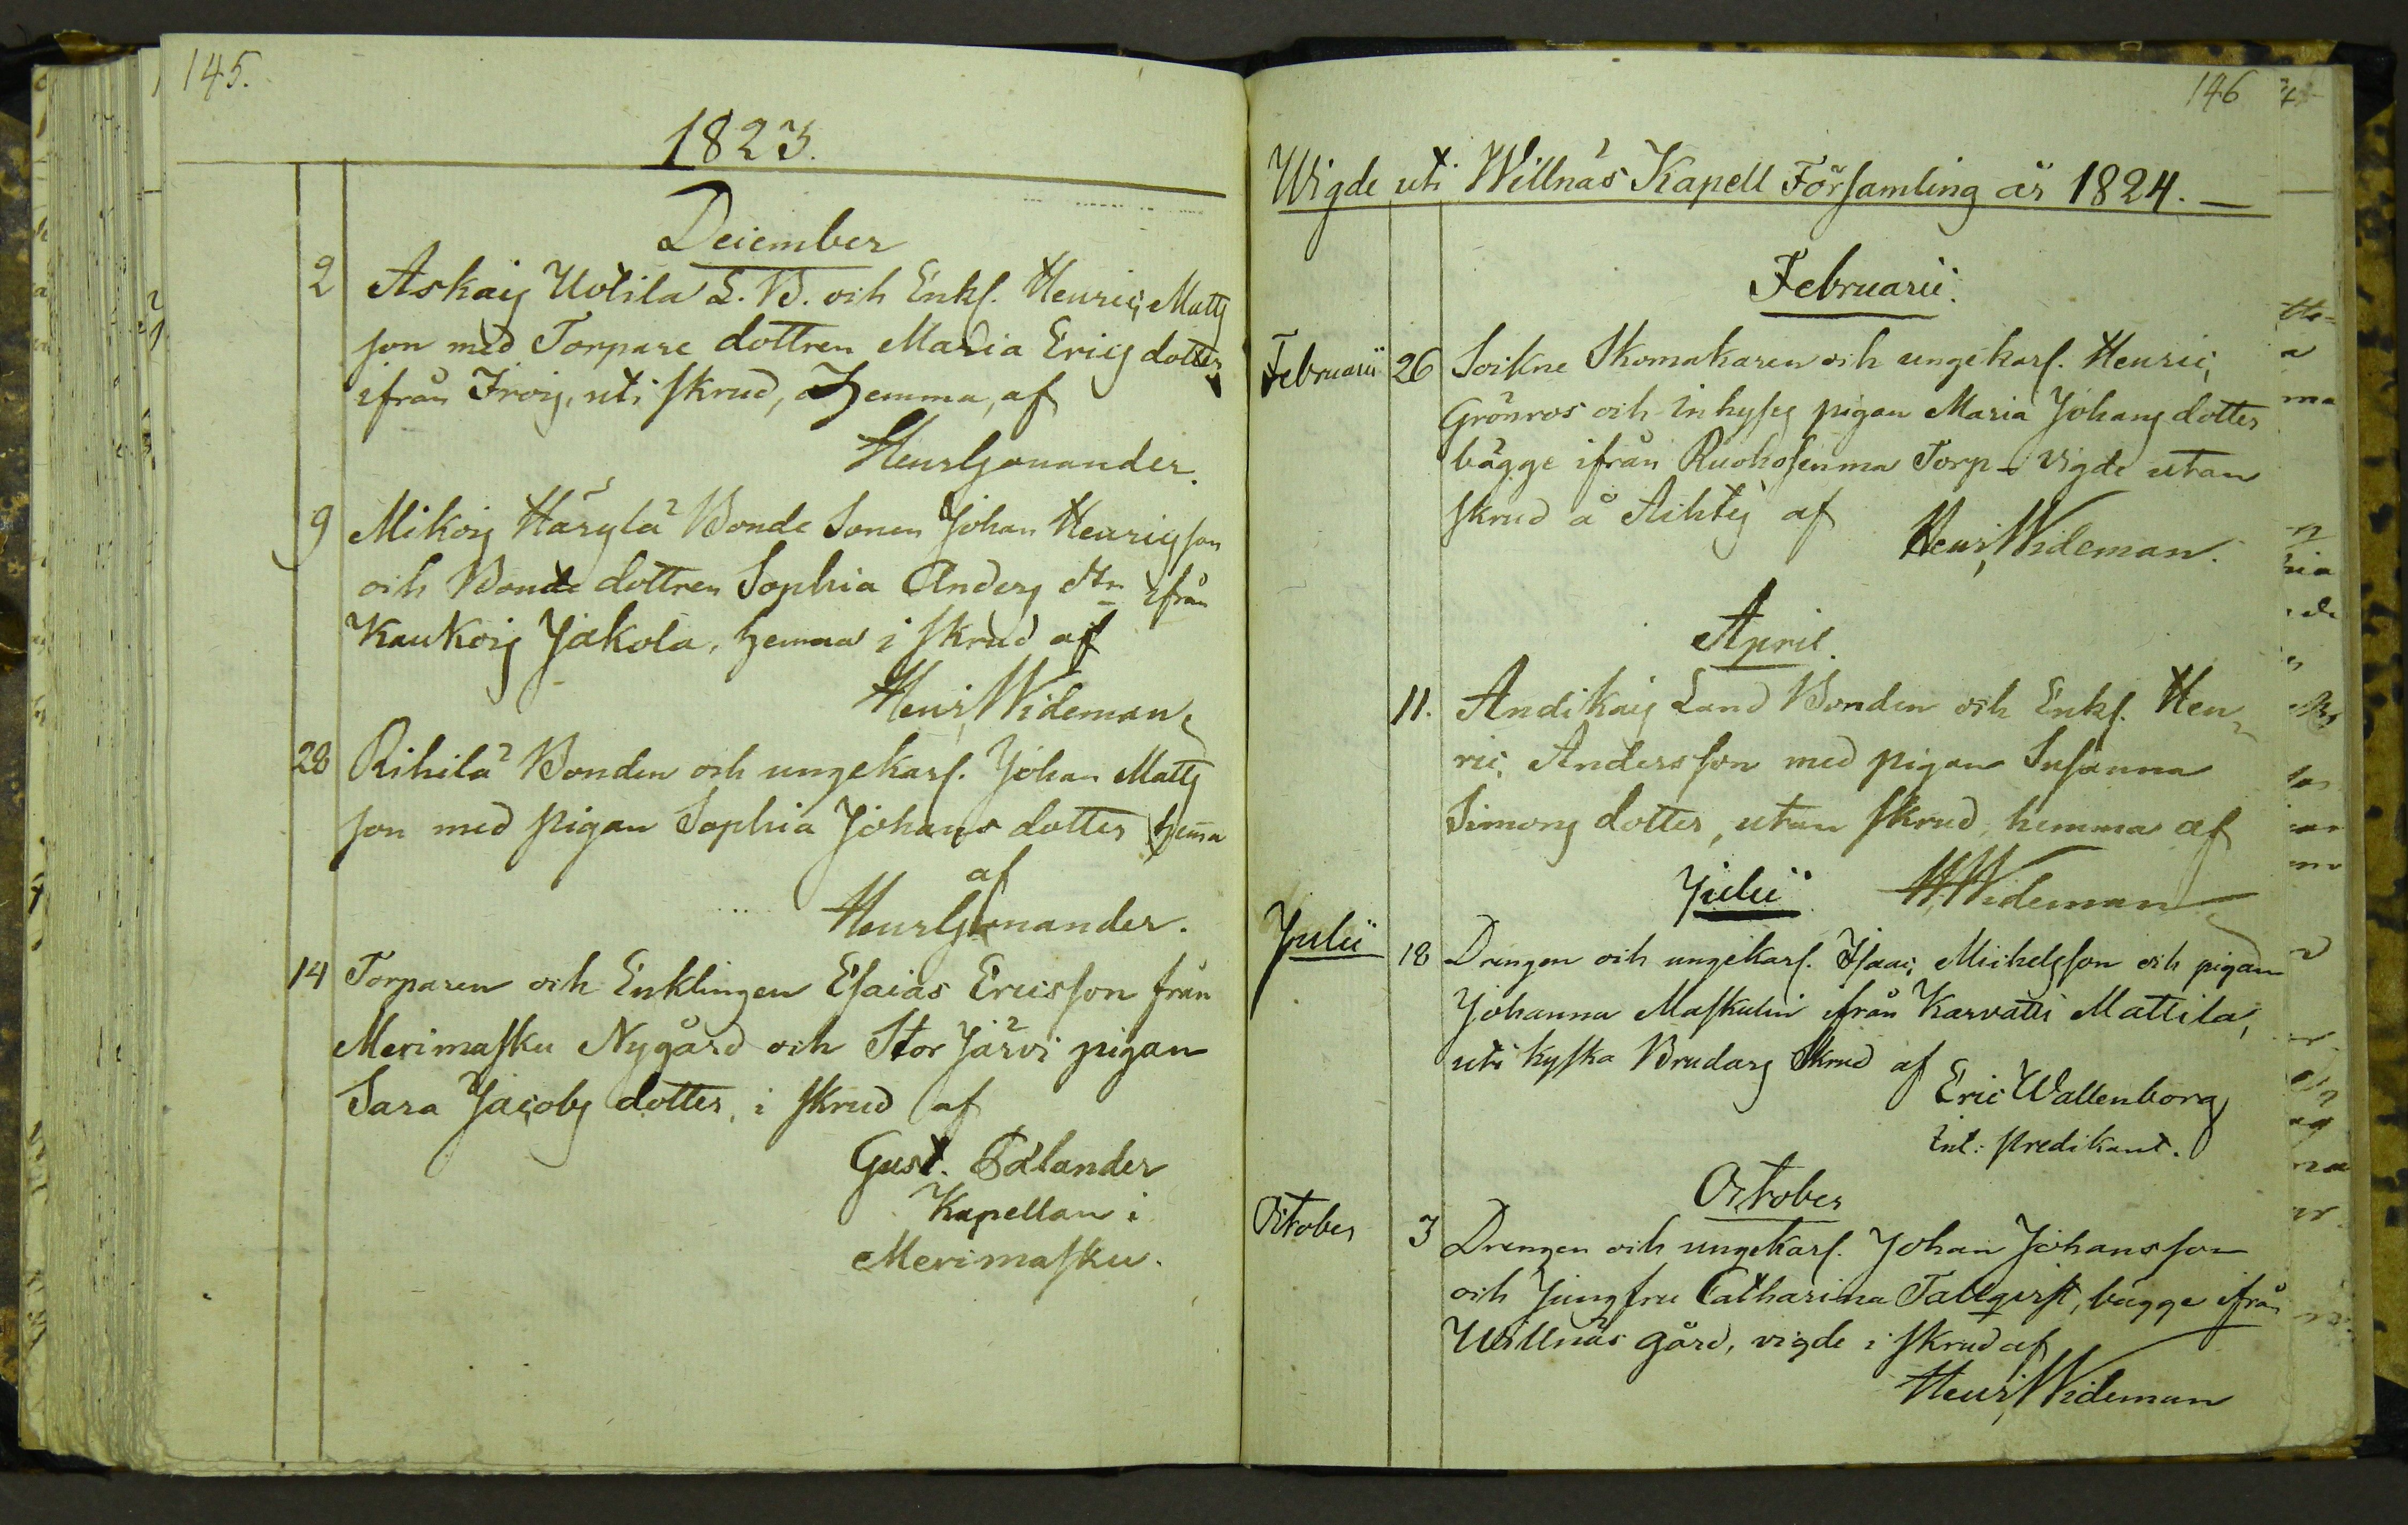 145.
1823.
December
2 Askais Uotila L. B. och Enkl. Henric Matts
son med Torpare dottren Maria Erics dotter
ifrån Frois, uti skrud, hemma, af
Henr Gonander.
9 Mikois Härylä Bonde Sonen Johan Henricsson
och Bonde dottren Sophia Anders dtr ifrån
Kaukois Jakola, hemma i skrud af
Henr, Wideman,
28 Rihilä Bonden och ungekarl. Johan Matts
son med pigan Sophia Johans dotter hem̄a
af
Henr Gonander.
14 Torparen och Enklingen Esaias Ericsson från
Merimasku Nygård och Stor Järvi pigan
Sara Jacobs dotter, i skrud af
Gust. Salander
Kapellan i
Merimasku.
146
Wigde uti Willnäs Kapell Församling år 1824.
Februarii.
Februarii 26 Soikne Skomakaren och ungekarl. Henric,
Grönros och inhyses pigan Maria Johans dotter
bägge ifrån Ruohosenma Torp - vigde utan
skrud å Aihtis af
Henr, Wideman.
April.
11. Andikais Land Bonden och Enkl. Hen
ric, Andersson med pigan Susanna
Simons dotter, utan skrud, hemma af
Julii H, Wideman
Julii 18 Drengen och ungekarl. Isaac, Michelsson och pigan
Johanna Maskulin ifrån Karvatti Mattila,
uti kyska Brudars skrud af
Eric Wallenborg
Ext: predikant.
October
October 3 Drengen och ungekarl. Johan Johansson
och Jungfru Catharina Tallqvist, bägge ifrån
Willnäs gård, vigde i skrud af
Henr, Wideman